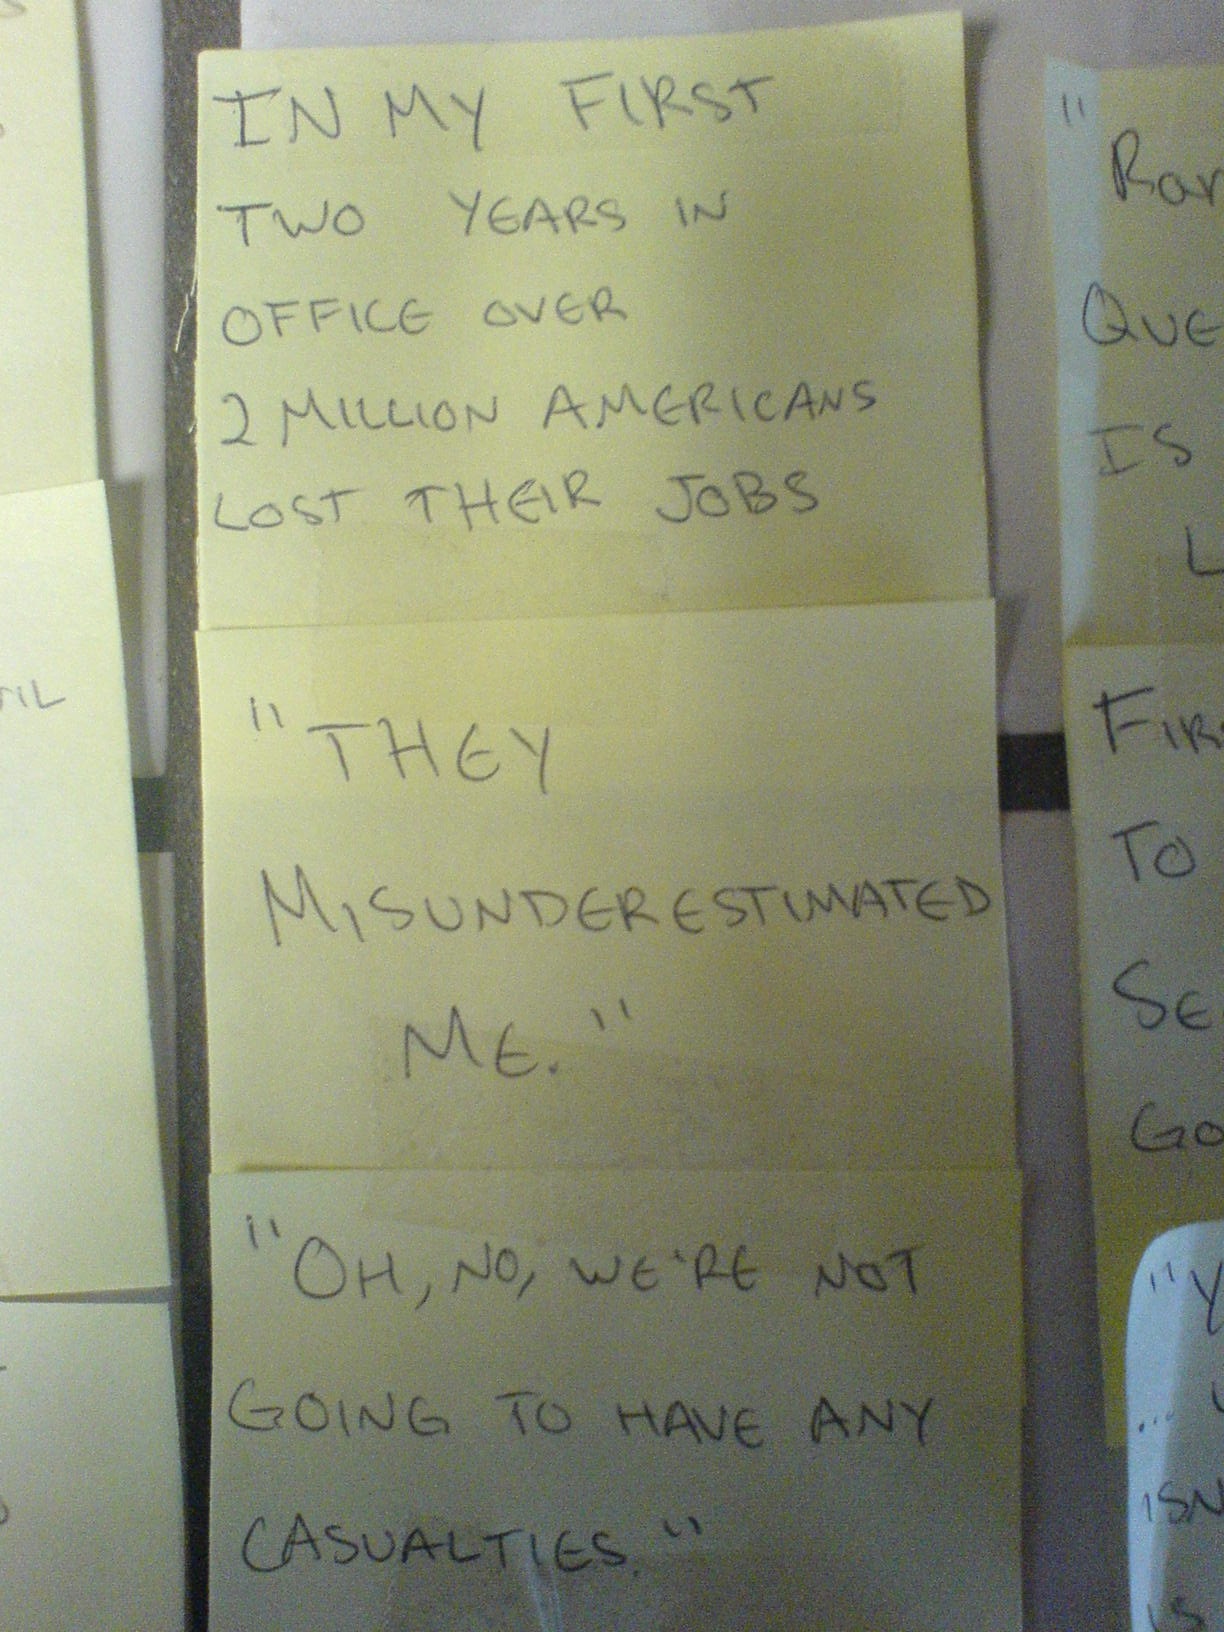 IN MY FIRST
TWO YEARS IN
OFFICE OVER
2 MILLION AMERICANS
LOST THEIR JOBS
"THEY
MISUNDERESTIMATED
ME."
"OH, NO, WE'RE NOT
GOING TO HAVE ANY
CASUALTIES."
"
IS
TO
"Y
...